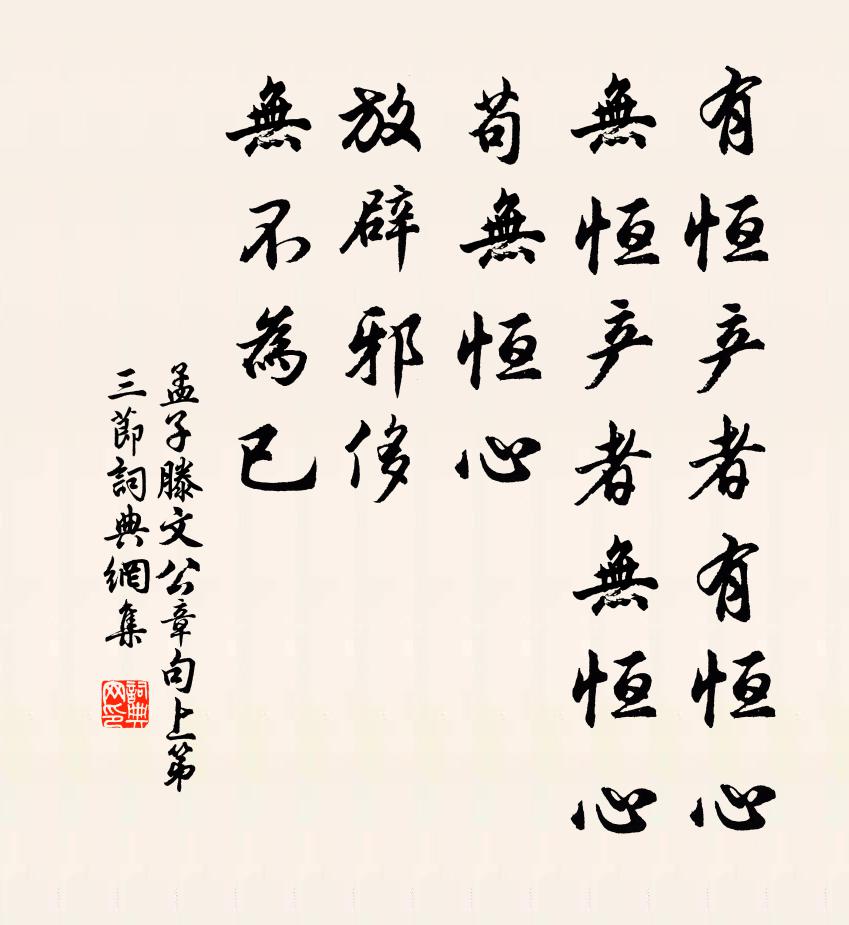 有恒产者有恒心
無恒产者無恒心
苟無恒心
放辟邪侈
無不為已
孟子滕文公章句上第
三節詞典網集
詞典
网印